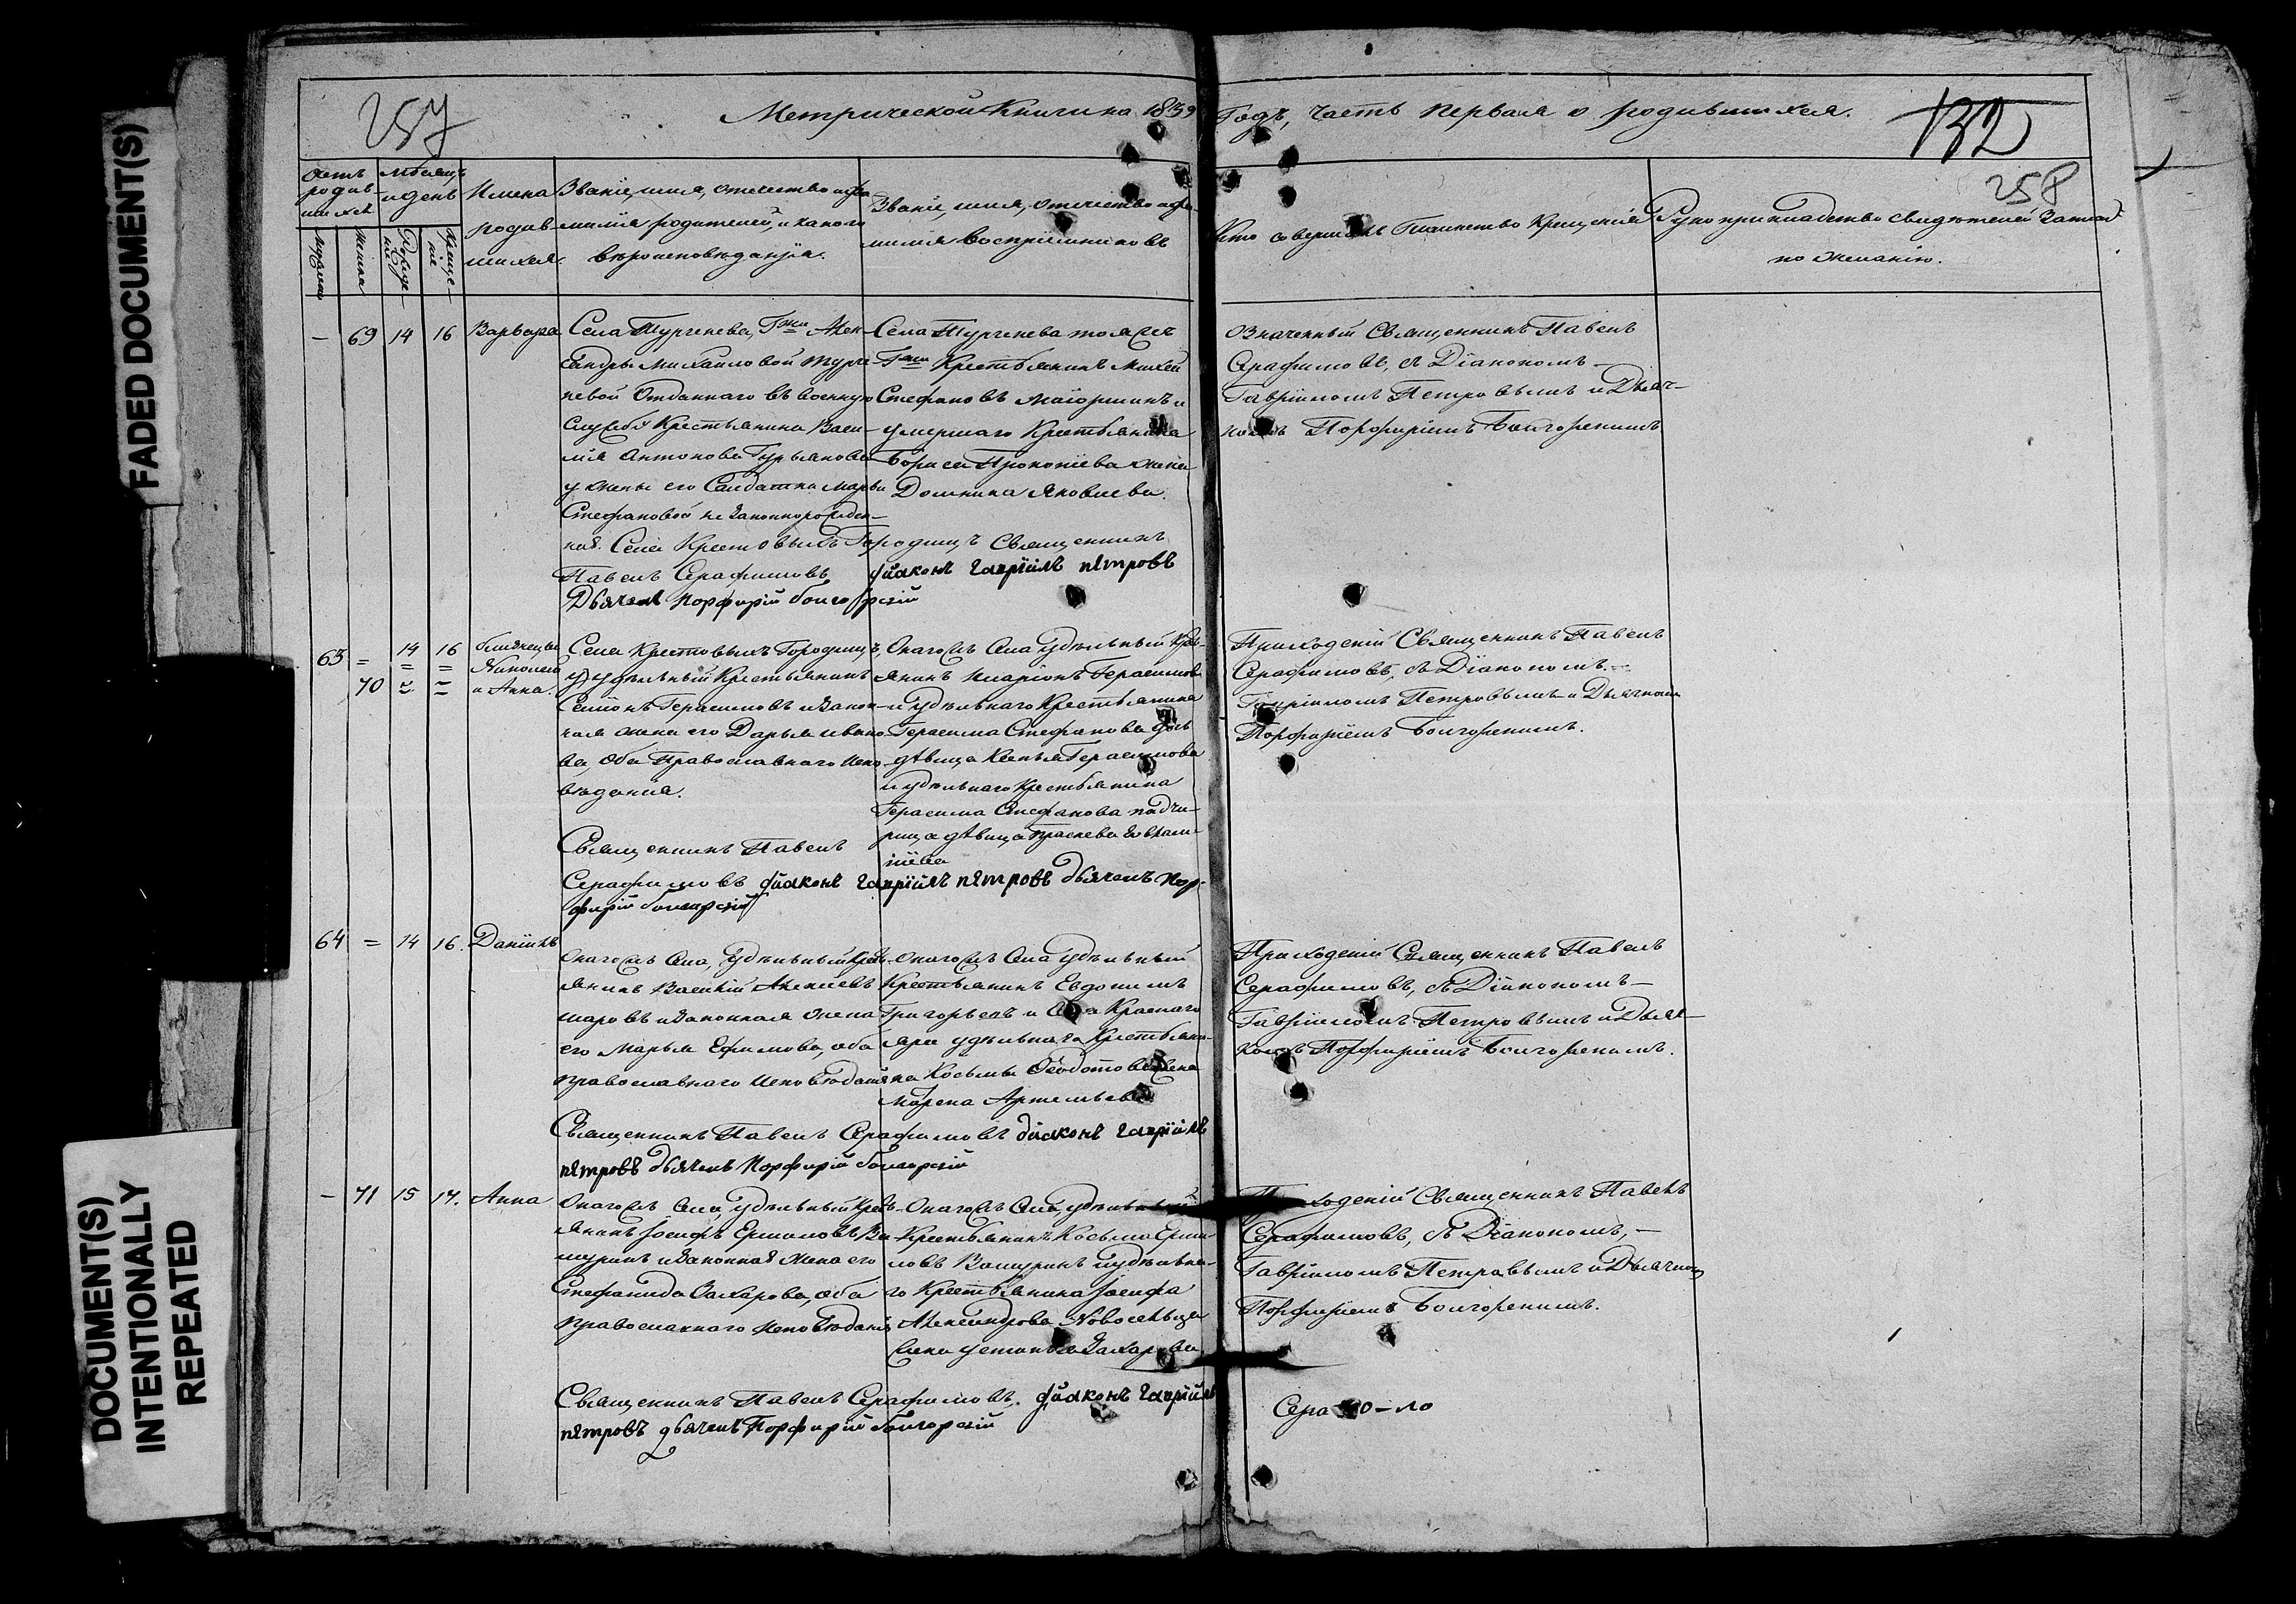 FADED DOCUMENT(S)
DOCUMENT(S)
INTENTIONALLY
REPEATED
257
Метрической Книги на 1859
Годъ, часть первая о родившихся.
132
258
Счетъ родив-шихся
Мѣсяцъ и день
Имена родив-шихся.
Званіе, имя, отчество и фа-
милія родителей, и какого
вѣроисповѣданія.
Званіе, имя, отчество и фа-
милія воспріемниковъ
Кто совершалъ Таинство Крещенія
Рукоприкладство свидѣтелей записи
по желанію.
Мужеска
Женска
Рожде-нія
Креще-нія
– 69 14 16 Варвара
Села Тургенева, Гжи Алек-
сандры Михайловой Турге-
невой Отданнаго въ военную
службу Крестьянина Васи-
лія Антонова Гурьянова
у жены его Салдатки Марьи
Стефановой не законнорожден-
ная. Села Крестовыхъ Городищъ Священникъ
Павелъ Серафимовъ діаконъ гавріилъ петровъ
Дьячекъ Порфирій болгорскій
Села Тургенева тояже
Гжи Крестьянинъ Михей
Стефановъ и
умершаго Крестьянина
Бориса Прокопіева жена
Домнина Яковлева.
Означенный Священникъ Павелъ
Серафимовъ, съ Діакономъ
Гавріиломъ Петровымъ и Дьяч-
комъ Порфиріемъ Болгорскимъ
63 = 14 16 близнецы
70 = = Николай
и Анна.
Села Крестовыхъ Городищъ,
удѣльный Крестьянинъ
Симонъ Герасимовъ и закон-
ная жена его Дарья Ивано-
ва, оба Православнаго испо-
вѣданія.
Священникъ Павелъ
Серафимовъ діаконъ гавріилъ петровъ дьячекъ пор-
фирій болгорскій
Онагожъ Села удѣльный Кресть-
янинъ Иларіонъ Герасимовъ
и удѣльнаго Крестьянина
Герасима Стефанова дочь
дѣвица Герасимова
и удѣльнаго Крестьянина
Герасима Стефанова падче-
рица дѣвица
Приходскій Священникъ Павелъ
Серафимовъ, съ Діакономъ
Гавріиломъ Петровымъ и Дьячкомъ
Порфиріемъ Болгорскимъ.
64 = 14 16. Даніилъ
Онагожъ Села, Удѣльный Кресть-
янинъ Василій Алексѣевъ
и законная жена
его Марья Ефимова, оба
православнаго исповѣданія
Священникъ Павелъ Серафимовъ діаконъ гавріилъ
петровъ дьячекъ Порфирій болгорскій
Онагожъ Села удѣльный
Крестьянинъ Евдокимъ
Григорьевъ и Села Краснаго
яра удѣльнаго Крестьяни-
на Косьмы Ѳеодотова жена
Марѳа
Приходскій Священникъ Павелъ
Серафимовъ, съ Діакономъ
Гавріиломъ Петровымъ и Дьяч-
комъ Порфиріемъ Болгорскимъ.
– 71 15 17. Анна
Онагожъ Села, удѣльный Кресть-
янинъ Іосифъ Ермоловъ Ва-
шуринъ и законная жена его
Стефанида Захарова, оба
православнаго исповѣданія
Священникъ Павелъ Серафимовъ. діаконъ гавріилъ
петровъ дьячекъ Порфирій болгорскій
Онагожъ Села, удѣльный
Крестьянинъ Косьма Ермо-
ловъ Вашуринъ и удѣльна-
го Крестьянина Іосифа
Александрова Новосельцева
Захарова
Приходскій Священникъ Павелъ
Серафимовъ, съ Діакономъ,
Гавріиломъ Петровымъ и Дьячкомъ
Порфиріемъ Болгорскимъ.